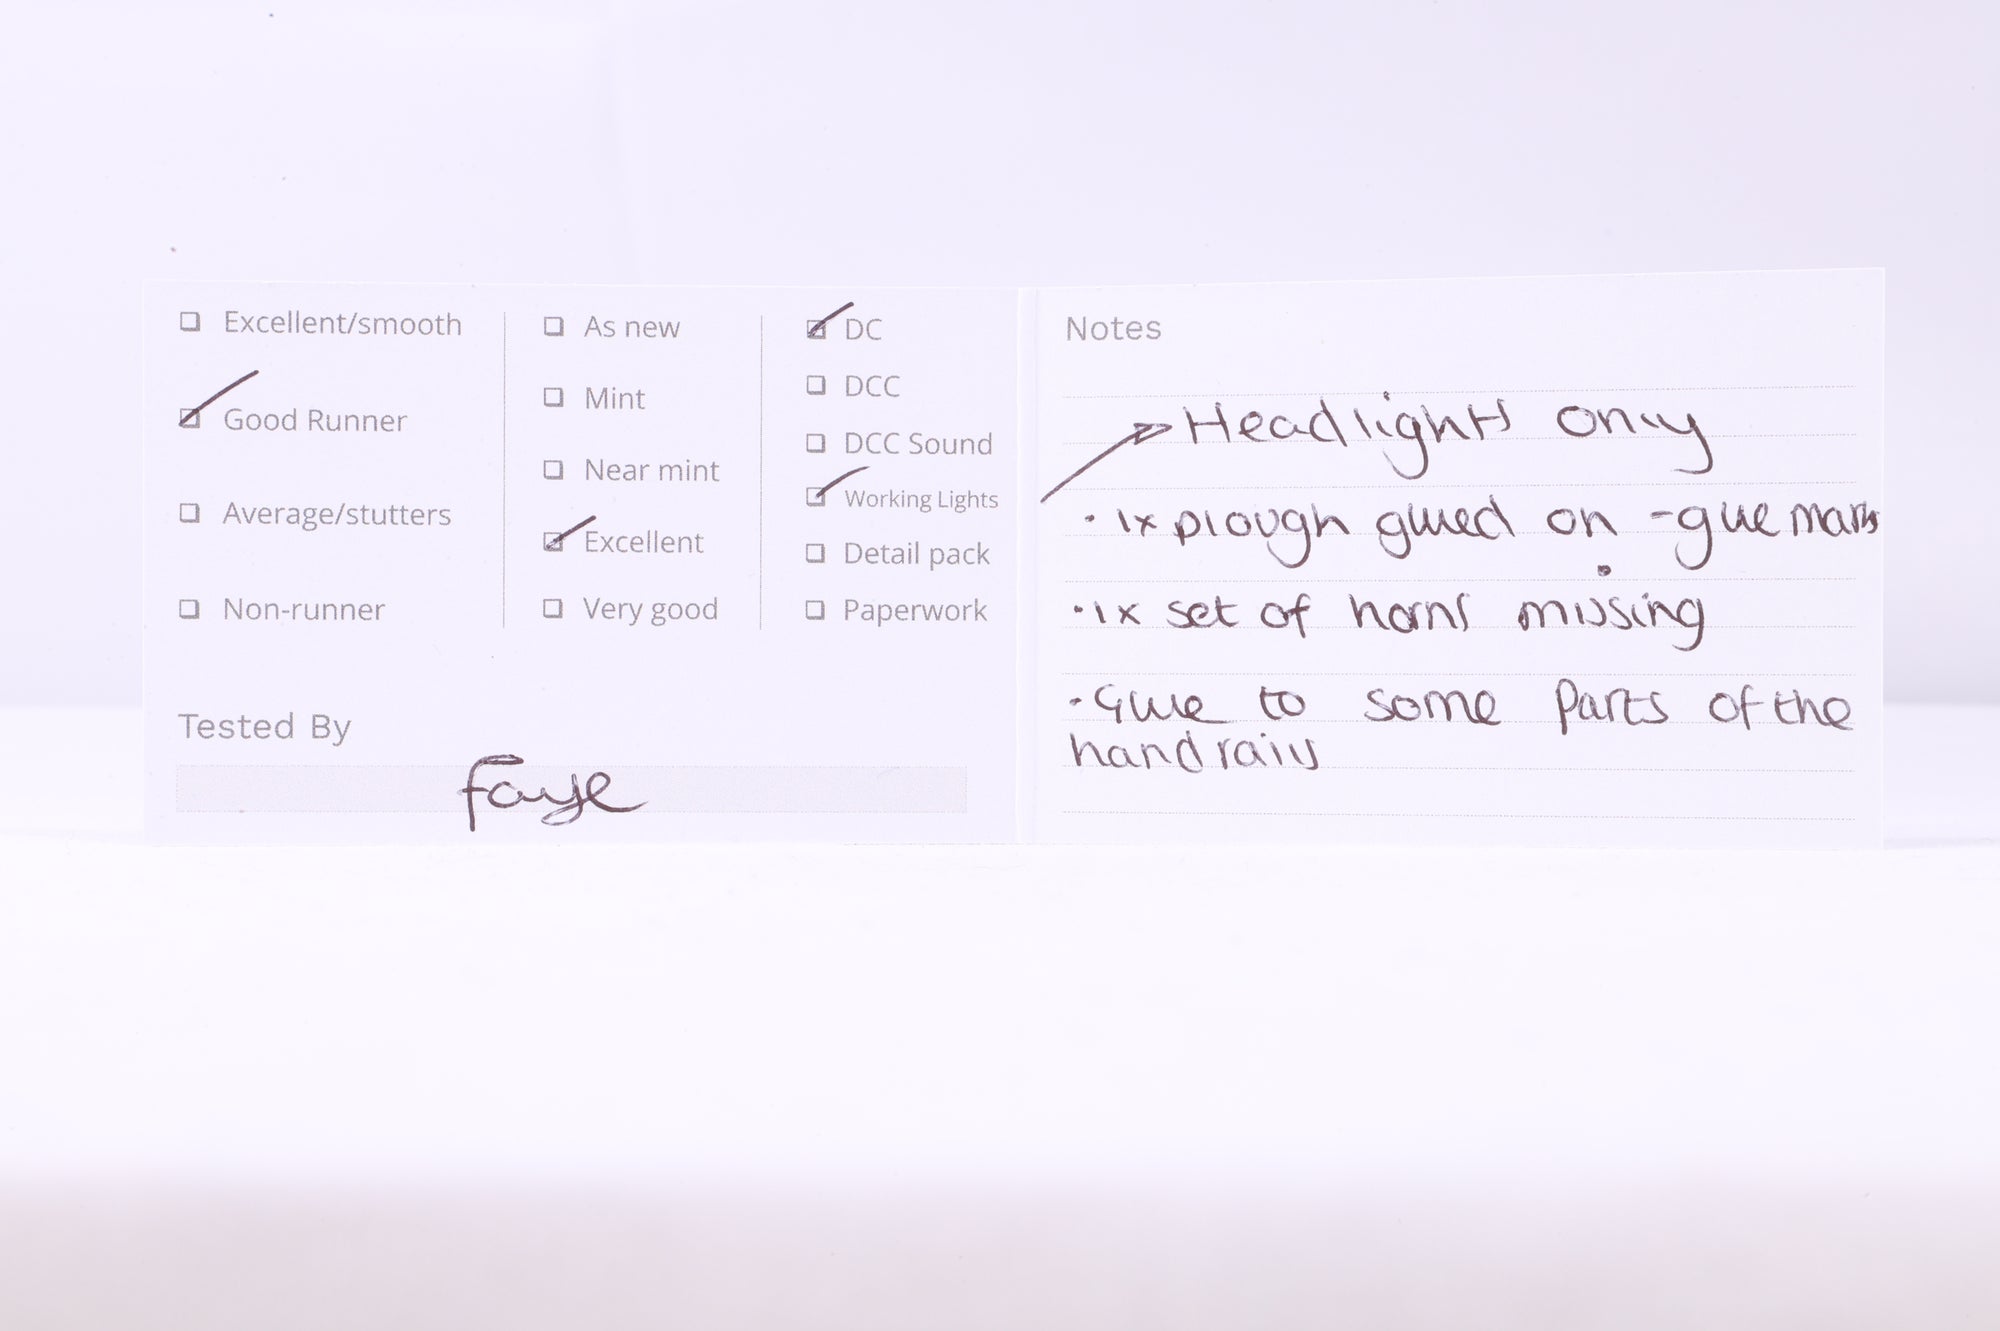 Excellent/smooth
Good Runner
Average/stutters
Non-runner
As new
Mint
Near mint
Excellent
Very good
DC
DCC
DCC Sound
Working Lights
Detail pack
Paperwork
Tested By
Faye
Notes
Headlights only
· 1x plough glued on - glue marks
· 1x set of horns missing
· Glue to some parts of the
handrails